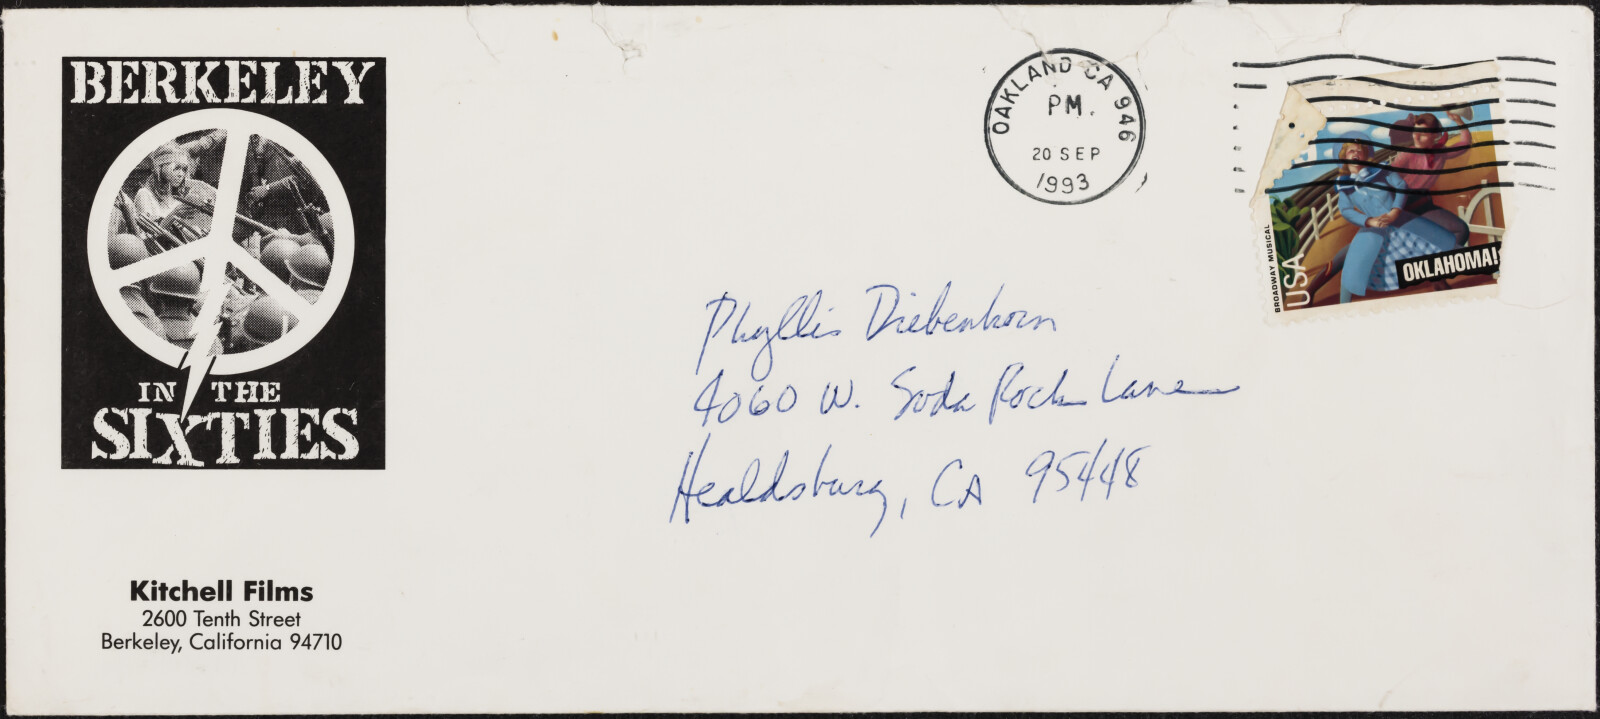 BERKELEY
IN THE
SIXTIES
Kitchell Films
2600 Tenth Street
Berkeley, California 94710
OAKLAND CA 946
PM.
20 SEP
1993
BROADWAY MUSICAL
USA
OKLAHOMA!
Phyllis Diebenkorn
4060 W. Soda Rock Lane
Healdsburg, CA 95448